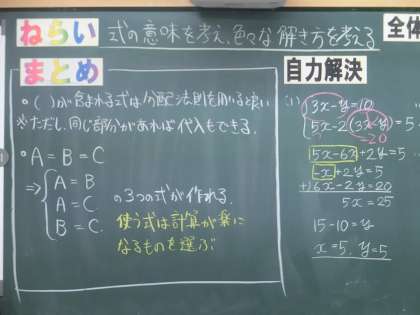 ねらい
式の意味を考え、色々な解き方を考える
全体
まとめ
○( )が含まれる式は分配法則を用いると良い
※ただし、同じ部分があれば代入もできる。
○A=B=C
⇒{A=B
A=C
B=C.
の3つの式が作れる.
使う式は計算が楽に
なるものを選ぶ
自力解決
(1)
3x-y=10
5x-2(3x-y)=5
-20
15x-6x+2y=5
-x+2y=5
+)6x-2y=20
5x=25
15-10=y
x=5, y=5